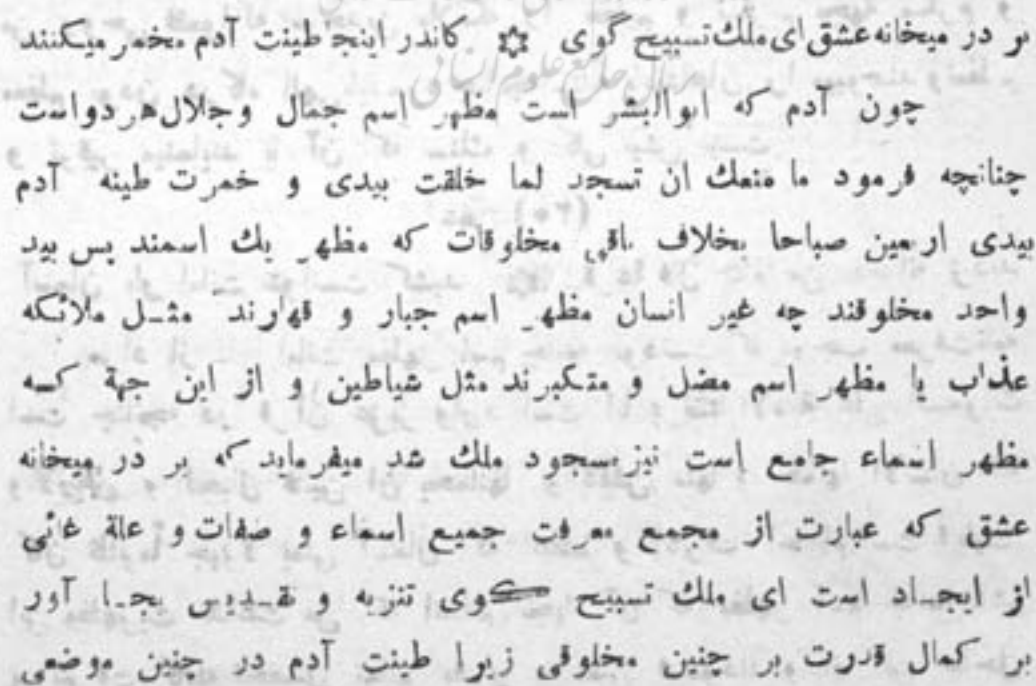 بر در میخانه عشق ای ملك تسبیح گوی ۞ کاندر اینجا طینت آدم مخمر میکنند
چون آدم که ابوالبشر است مظهر اسم جمال وجلال هر دواست
چنانچه فرمود ما منعك ان تسجد لما خلقت بیدی و خمرت طینه آدم
بیدی اربعین صباحا بخلاف باقی مخلوقات که مظهر یك اسمند پس بید
واحد مخلوقند چه غیر انسان مظهر اسم جبار و قهارند مثل ملائکه
عذاب یا مظهر اسم مضل و متکبرند مثل شیاطین و از این جهة که
مظهر اسماء جامع است نیز مسجود ملك شد میفرماید که بر در میخانه
عشق که عبارت از مجمع معرفت جمیع اسماء و صفات و علة غائی
از ایجاد است ای ملك تسبیح گوی تنزیه و تقدیس بجا آور
بر کمال قدرت بر چنین مخلوقی زیرا طینت آدم در چنین موضعی